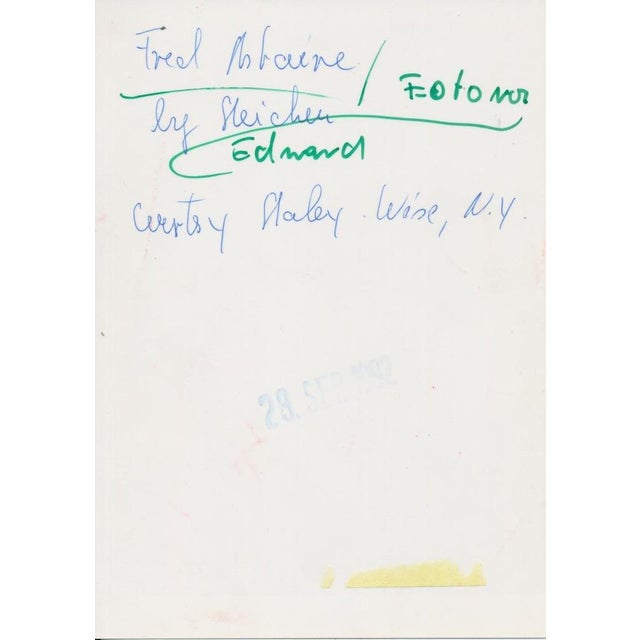 Fred Astaire
/ Fotovor
by Steichen
Edward
Courtsy Staley. Wise, N.Y.
29. SEP. 1992